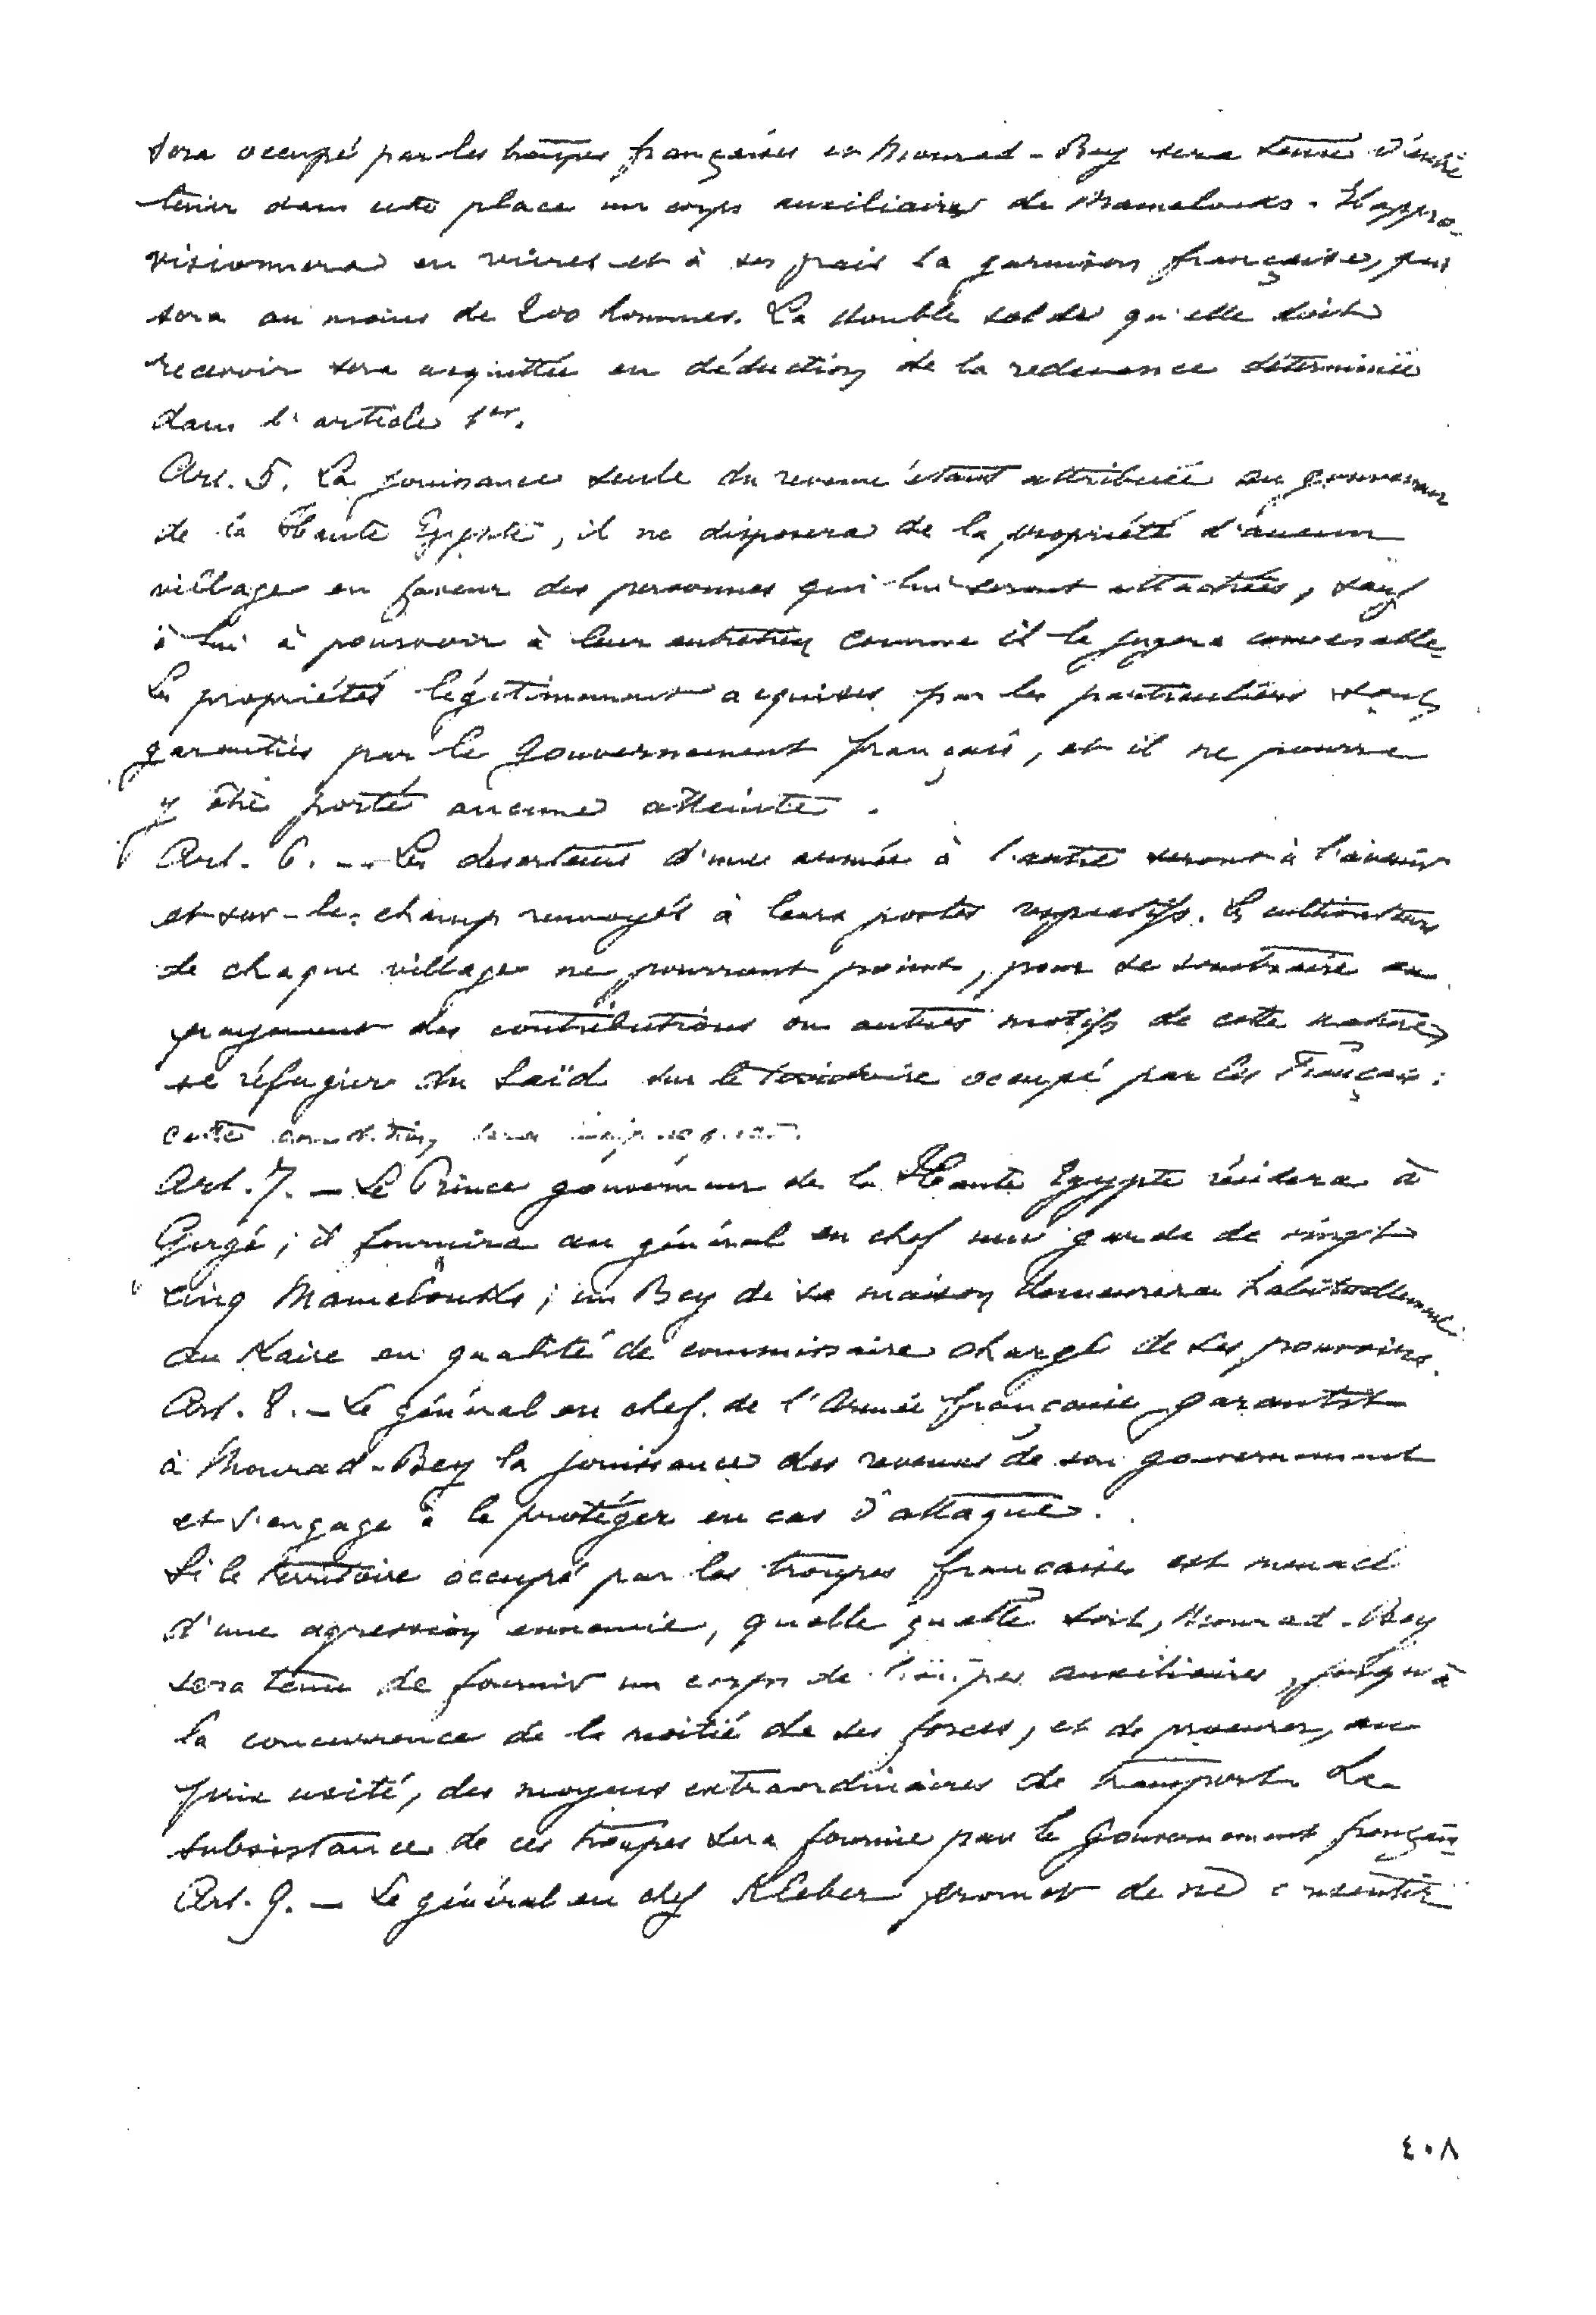 sera occupé par les troupes françaises et Mourad-Bey sera tenu d'entre
tenir dans cette place un corps auxiliaire de Mamelouks. Il appro-
visionnera en vivres et à ses frais la garnison française, qui
sera au moins de 200 hommes. La double solde qu'elle doit
recevoir sera acquittée en déduction de la redevance déterminée
dans l'article 1er.
Art. 5. La jouissance seule du revenu étant attribuée au gouverneur
de la Haute Egypte, il ne disposera de la propriété d'aucun
village en faveur des personnes qui lui seront attachées, sauf
à lui à pourvoir à leur entretien comme il le jugera convenable
Les propriétés légitimement acquises par les particuliers sont
garanties par le Gouvernement français, et il ne pourra
y être porté aucune atteinte.
Art. 6. — Les déserteurs d'une armée à l'autre seront à l'avenir
et sur-le-champ renvoyés à leurs postes respectifs. Les cultivateurs
de chaque village ne pourront point, pour se soustraire au
payement des contributions ou autres motifs de cette nature,
se réfugier du Saïd sur le territoire occupé par les Français :
cette condition sera
Art. 7. — Le Prince gouverneur de la Haute Egypte résidera à
Gergé ; il fournira au général en chef une garde de vingt
cinq Mamelouks ; un Bey de sa maison demeurera habituellement
au Kaire en qualité de commissaire chargé de ses pouvoirs.
Art. 8. — Le général en chef de l'Armée française garantit
à Mourad-Bey la jouissance des revenus de son gouvernement
et s'engage à le protéger en cas d'attaque.
Si le territoire occupé par les troupes françaises est menacé
d'une agression ennemie, quelle qu'elle soit, Mourad-Bey
sera tenu de fournir un corps de troupes auxiliaires, jusqu'à
la concurrence de la moitié de ses forces, et de procurer, au
prix usité, des moyens extraordinaires de transport. La
subsistance de ces troupes sera fournie par le Gouvernement français
Art. 9. — Le général en chef Kleber promet de ne consentir
٤٠٨